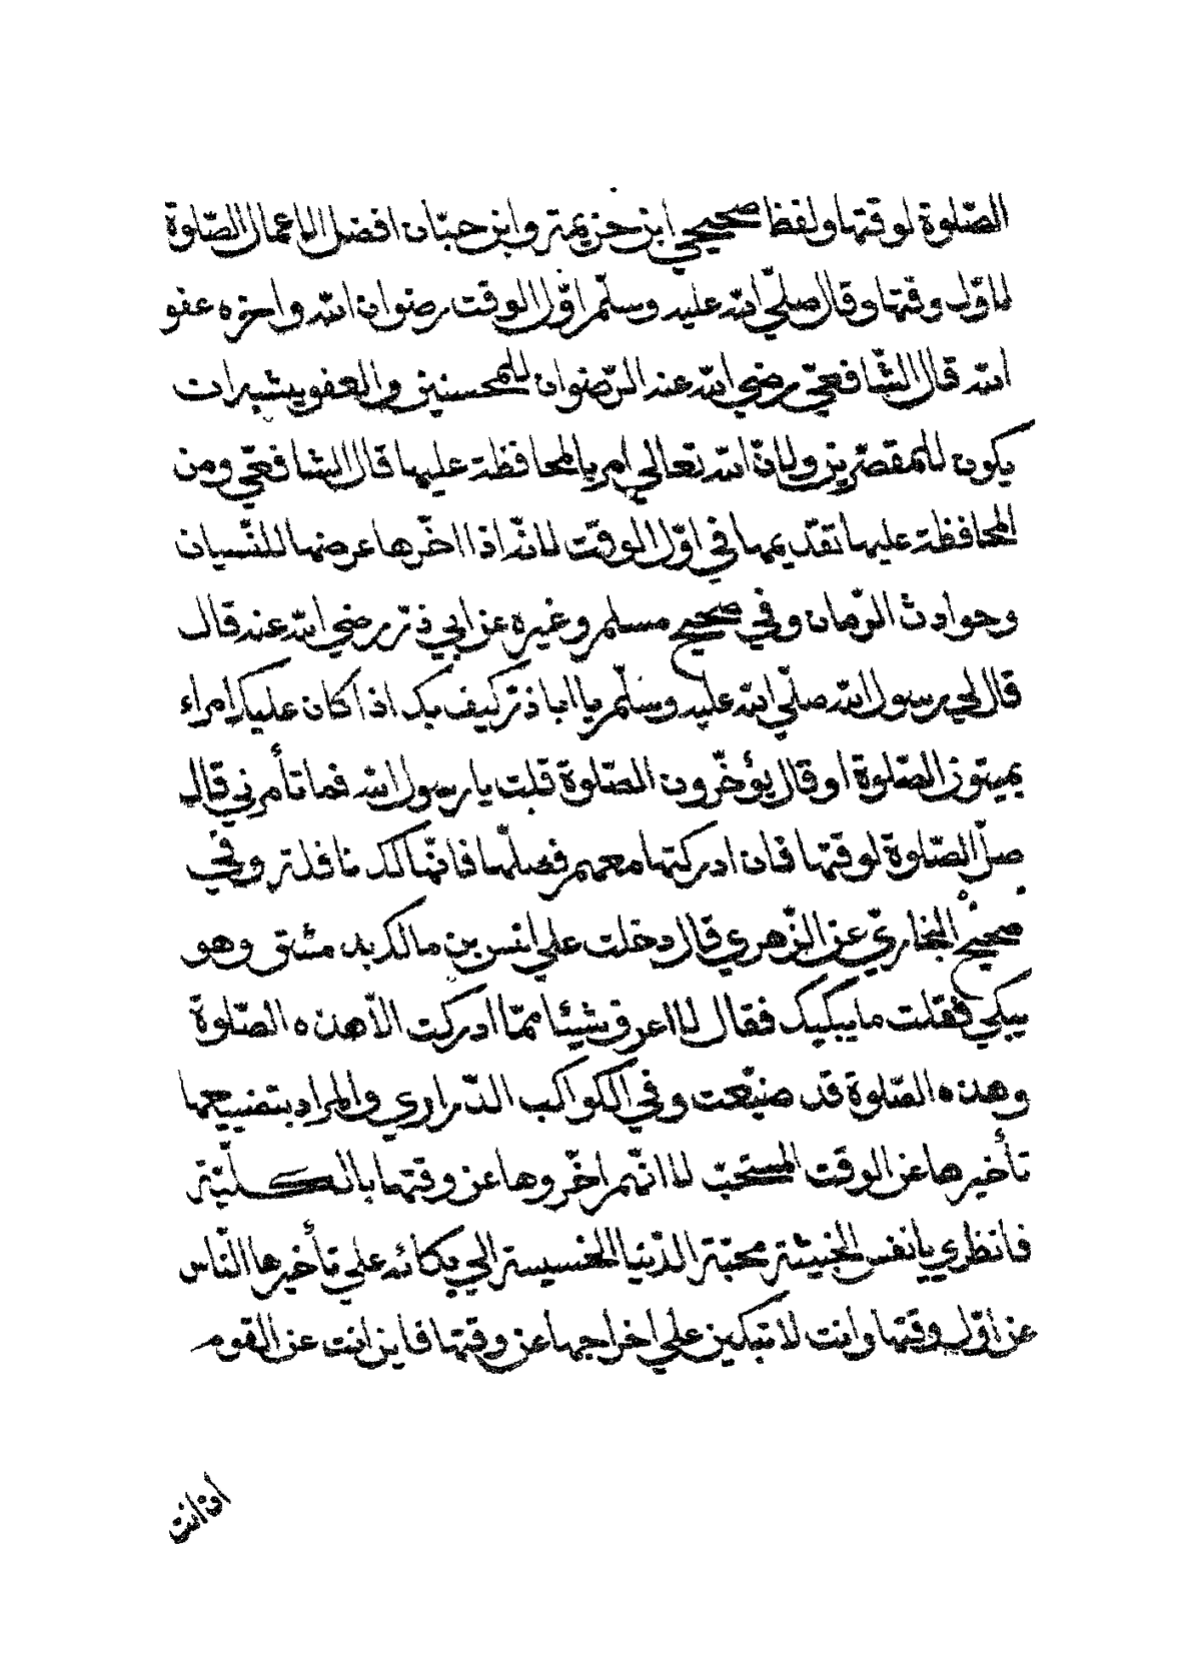 الصّلوة لوقتها ولفظ صحيحي ابن خزيمة وابن حبّان افضل الاعمال الصّلوة
لاوّل وقتها وقال صلّي الله عليه وسلّم اوّل الوقت رضوان الله واخره عفو
الله قال الشّافعيّ رضي الله عنه الرّضوان للمحسنين والعفو يشبه ان
يكون للمقصّرين ولانّ الله تعالي امر بالمحافظة عليها قال الشافعيّ ومن
المحافظة عليها تقديمها في اوّل الوقت لانّه اذا اخّرها عرضها للنّسيان
وحوادث الزّمان وفي صحيح مسلم وغيره عن ابي ذرّ رضي الله عنه قال
قال لي رسول الله صلّي الله عليه وسلّم يا ابا ذرّ كيف بك اذا كان عليك امراء
يميتون الصّلوة او قال يؤخّرون الصّلوة قلت يا رسول الله فما تأمرني قال
صلّ الصّلوة لوقتها فان ادركتها معهم فصلّها فانّها لك نافلة وفي
صحيح البخاريّ عن الزّهري قال دخلت علي انس بن مالك بدمشق وهو
يبكي فقلت ما يبكيك فقال لا اعرف شيئا ممّا ادركت الّا هذه الصّلوة
وهذه الصّلوة قد ضيّعت وفي الكواكب الدّراري والمراد بتضييعها
تأخيرها عن الوقت المستحبّ لا انّهم اخّروها عن وقتها بالكليّة
فانظري يا نفس الخبيثة محبّة الدّنيا الخسيسة الي بكائه علي تأخيرها النّاس
عن اوّل وقتها وانت لا تبكين علي اخراجها عن وقتها فاين انت عن القوم
اين انت